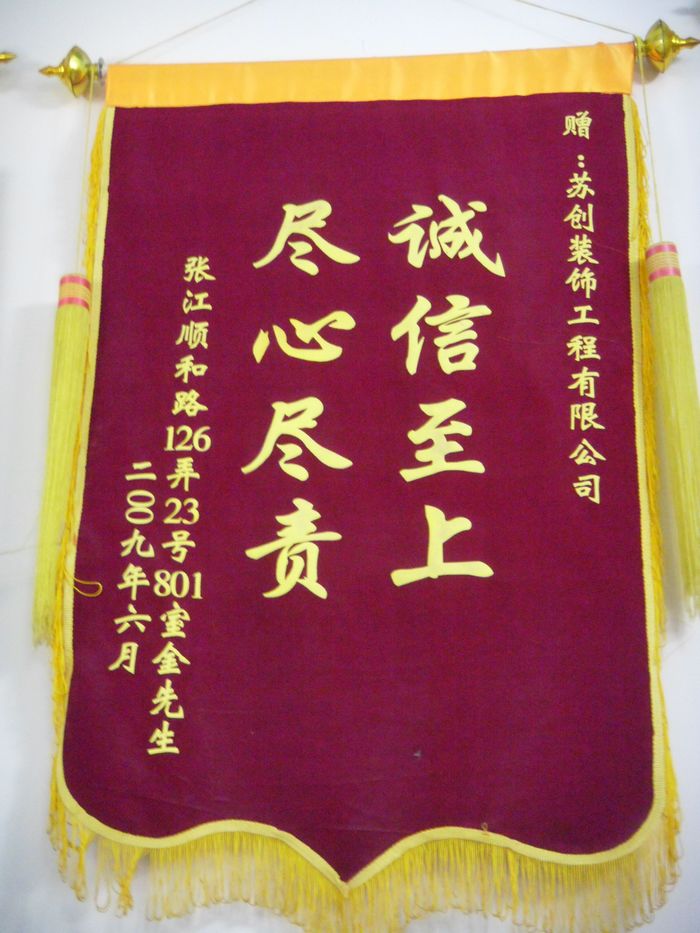 赠:苏创装饰工程有限公司
诚信至上
尽心尽责
张江顺和路126弄23号801室金先生
二00九年六月